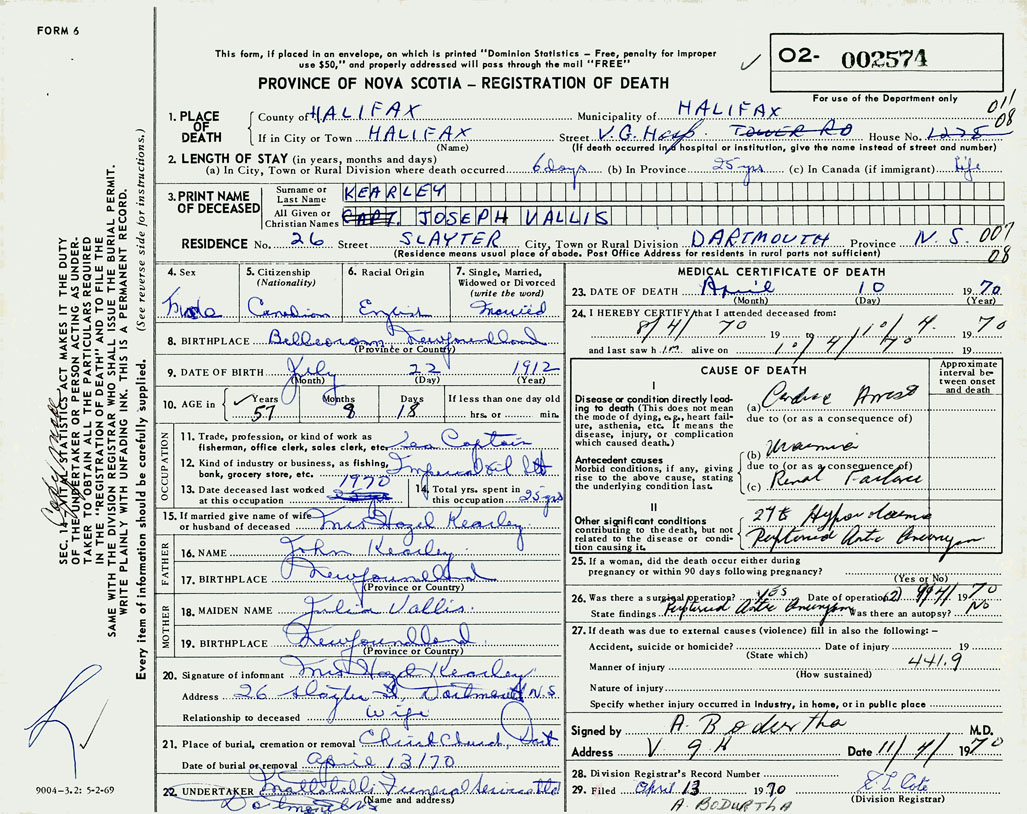 FORM 6
This form, if placed in an envelope, on which is printed "Dominion Statistics – Free, penalty for improper
use $50," and properly addressed will pass through the mail "FREE"
PROVINCE OF NOVA SCOTIA – REGISTRATION OF DEATH
O2- 002574
For use of the Department only
011
08
1. PLACE OF DEATH
County of HALIFAX Municipality of HALIFAX
If in City or Town HALIFAX Street V.G. Hosp. TOWER RD House No. 1278
(Name) (If death occurred in a hospital or institution, give the name instead of street and number)
2. LENGTH OF STAY (in years, months and days)
(a) In City, Town or Rural Division where death occurred 6 days (b) In Province 25 yrs (c) In Canada (if immigrant) life
3. PRINT NAME OF DECEASED
Surname or Last Name KEARLEY
All Given or Christian Names CAPT. JOSEPH VALLIS
RESIDENCE No. 26 Street SLAYTER City, Town or Rural Division DARTMOUTH Province N.S. 007
(Residence means usual place of abode. Post Office Address for residents in rural parts not sufficient) 08
4. Sex
5. Citizenship (Nationality) Canadian
6. Racial Origin English
7. Single, Married, Widowed or Divorced (write the word) Married
8. BIRTHPLACE Belleoram, Newfoundland
(Province or Country)
9. DATE OF BIRTH July 22 1912
(Month) (Day) (Year)
10. AGE in Years 57 Months 8 Days 18 If less than one day old hrs. or min.
OCCUPATION
11. Trade, profession, or kind of work as fisherman, office clerk, sales clerk, etc. Sea Captain
12. Kind of industry or business, as fishing, bank, grocery store, etc. Imperial Oil Ltd
13. Date deceased last worked at this occupation 1970
14. Total yrs. spent in this occupation 25 yrs
15. If married give name of wife or husband of deceased Mrs Hazel Kearley
FATHER
16. NAME John Kearley
17. BIRTHPLACE Newfoundland
(Province or Country)
MOTHER
18. MAIDEN NAME Julia Vallis
19. BIRTHPLACE Newfoundland
(Province or Country)
20. Signature of informant Mrs Hazel Kearley
Address 26 Slayter St, Dartmouth N.S
Relationship to deceased Wife
21. Place of burial, cremation or removal Christ Church, Dart
Date of burial or removal April 13/70
22. UNDERTAKER Mattatall Funeral Service Ltd
(Name and address)
Dartmouth NS
MEDICAL CERTIFICATE OF DEATH
23. DATE OF DEATH April 10 1970
(Month) (Day) (Year)
24. I HEREBY CERTIFY that I attended deceased from:
8/4/ 70 19 to 10/4. 1970
and last saw h im alive on 10/4/70 19
CAUSE OF DEATH
Approximate interval between onset and death
I
Disease or condition directly leading to death (This does not mean the mode of dying, e.g., heart failure, asthenia, etc. It means the disease, injury, or complication which caused death.)
(a) Cardiac Arrest
due to (or as a consequence of)
Antecedent causes
Morbid conditions, if any, giving rise to the above cause, stating the underlying condition last.
(b) Uraemia
due to (or as a consequence of)
(c) Renal Failure
II
Other significant conditions contributing to the death, but not related to the disease or condition causing it.
Hypovolaemia
Ruptured Aortic Aneurysm
25. If a woman, did the death occur either during pregnancy or within 90 days following pregnancy?
(Yes or No)
26. Was there a surgical operation? yes Date of operation 1970
State findings Ruptured Aortic Aneurysm Was there an autopsy? NO
27. If death was due to external causes (violence) fill in also the following: –
Accident, suicide or homicide? Date of injury 19
(State which)
Manner of injury 441.9
(How sustained)
Nature of injury
Specify whether injury occurred in industry, in home, or in public place
Signed by A Bodurtha M.D.
Address V G H Date 11/4/ 1970
28. Division Registrar's Record Number
29. Filed April 13 1970
(Division Registrar)
A. BODURTHA
SEC. 14 VITAL STATISTICS ACT MAKES IT THE DUTY
OF THE UNDERTAKER OR PERSON ACTING AS UNDER-
TAKER TO OBTAIN ALL THE PARTICULARS REQUIRED
IN THE "REGISTRATION OF DEATH" AND TO FILE THE
SAME WITH THE DIVISION REGISTRAR WHO SHALL ISSUE THE BURIAL PERMIT.
WRITE PLAINLY WITH UNFADING INK. THIS IS A PERMANENT RECORD.
Every item of information should be carefully supplied. (See reverse side for instructions.)
9004–3.2: 5-2-69